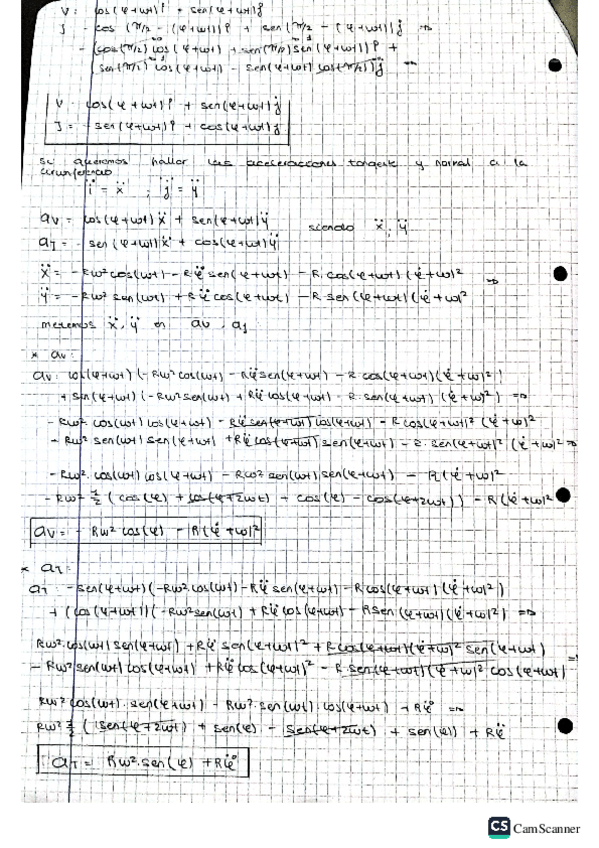 V = cos(φ+ωt)î + sen(φ+ωt)ĵ
J - cos (π/2 - (φ+ωt))î + sen(π/2 - (φ+ωt))ĵ ⇒
- (cos(π/2) cos(φ+ωt) + sen(π/2) sen(φ+ωt))î +
(sen(π/2) cos(φ+ωt) - sen(φ+ωt) cos(π/2))ĵ
V = cos(φ+ωt)î + sen(φ+ωt)ĵ
J = - sen(φ+ωt)î + cos(φ+ωt)ĵ
si queremos hallar las aceleraciones tangente y normal a la
circunferencia
ï = ẍ ; j̈ = ÿ
av = cos(φ+ωt)ẍ + sen(φ+ωt)ÿ siendo ẍ, ÿ
aJ = - sen(φ+ωt)ẍ + cos(φ+ωt)ÿ
ẍ = -Rω² cos(ωt) - Rφ̈ sen(φ+ωt) - R cos(φ+ωt)(φ̇+ω)² ⇒
ÿ = -Rω² sen(ωt) + Rφ̈ cos(φ+ωt) - R sen(φ+ωt)(φ̇+ω)²
metemos ẍ, ÿ en av, aJ
* av:
av = cos(φ+ωt)(-Rω² cos(ωt) - Rφ̈ sen(φ+ωt) - R cos(φ+ωt)(φ̇+ω)²)
+ sin(φ+ωt)(-Rω² sen(ωt) + Rφ̈ cos(φ+ωt) - R sen(φ+ωt)(φ̇+ω)²) ⇒
- Rω² cos(ωt) cos(φ+ωt) - Rφ̈ sen(φ+ωt) cos(φ+ωt) - R cos(φ+ωt)² (φ̇+ω)²
- Rω² sen(ωt) sen(φ+ωt) + Rφ̈ cos(φ+ωt) sen(φ+ωt) - R sen(φ+ωt)² (φ̇+ω)² ⇒
- Rω² cos(ωt) cos(φ+ωt) - Rω² sen(ωt) sen(φ+ωt) - R(φ̇+ω)²
- Rω² ½ (cos(φ) + cos(φ+2ωt) + cos(φ) - cos(φ+2ωt)) - R(φ̇+ω)²
av = - Rω² cos(φ) - R(φ̇+ω)²
* aJ:
aJ = - sen(φ+ωt)(-Rω² cos(ωt) - Rφ̈ sen(φ+ωt) - R cos(φ+ωt)(φ̇+ω)²)
+ (cos(φ+ωt))(-Rω² sen(ωt) + Rφ̈ cos(φ+ωt) - R sen(φ+ωt)(φ̇+ω)²) ⇒
Rω² cos(ωt) sen(φ+ωt) + Rφ̈ sen(φ+ωt)² + R cos(φ+ωt)(φ̇+ω)² sen(φ+ωt)
- Rω² sen(ωt) cos(φ+ωt) + Rφ̈ cos(φ+ωt)² - R sen(φ+ωt)(φ̇+ω)² cos(φ+ωt)
Rω² cos(ωt) · sen(φ+ωt) - Rω² · sen(ωt) · cos(φ+ωt) + Rφ̈ ⇒
Rω² ½ (sen(φ+2ωt) + sen(φ) - sen(φ+2ωt) + sen(φ)) + Rφ̈
aJ = Rω² · sen(φ) + Rφ̈
CS CamScanner